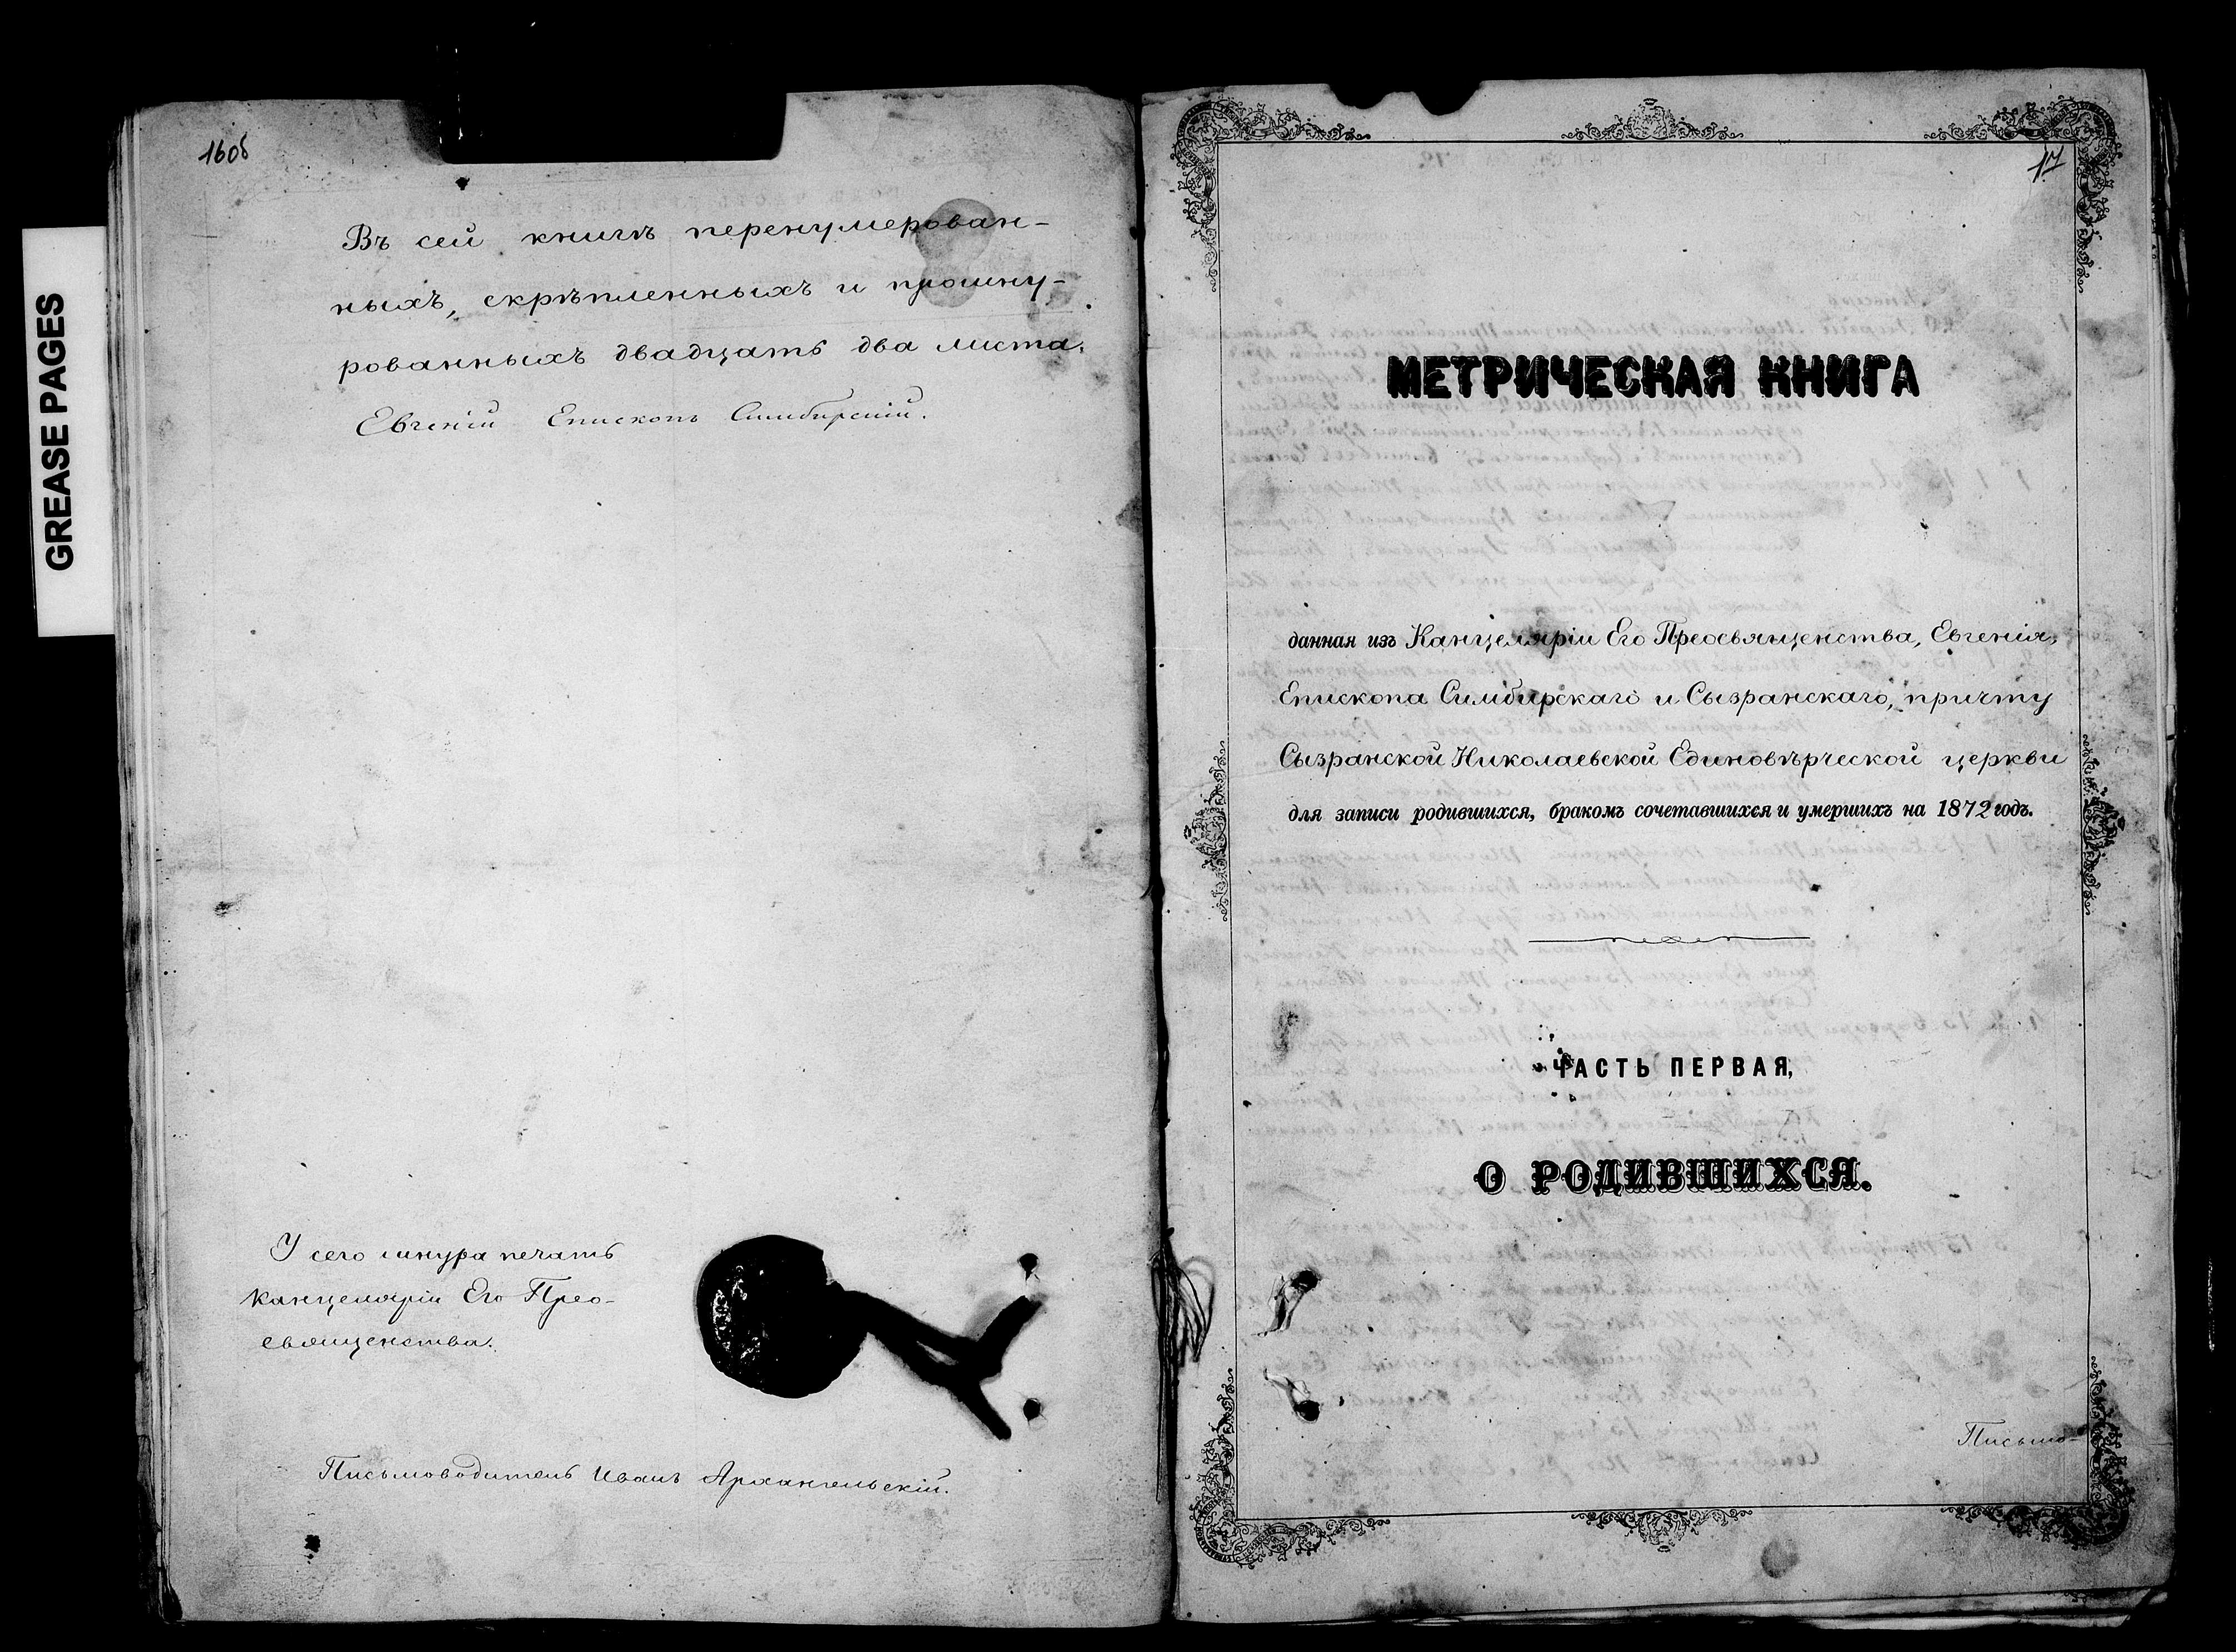 GREASE PAGES
16об
Въ сей книгѣ перенумерован-
ныхъ, скрѣпленныхъ и прошну-
рованныхъ двадцать два листа.
Евгеній Епископъ Симбирскій.
У сего шнура печать
Канцеляріи Его Прео-
священства.
Письмоводитель Иванъ Архангельскій.
17
МЕТРИЧЕСКАЯ КНИГА
данная изъ Канцеляріи Его Преосвященства, Евгенія,
Епископа Симбирскаго и Сызранскаго, причту
Сызранской Николаевской Единовѣрческой церкви
для записи родившихся, бракомъ сочетавшихся и умершихъ на 1872 годъ.
ЧАСТЬ ПЕРВАЯ,
О РОДИВШИХСЯ.
Письмо-